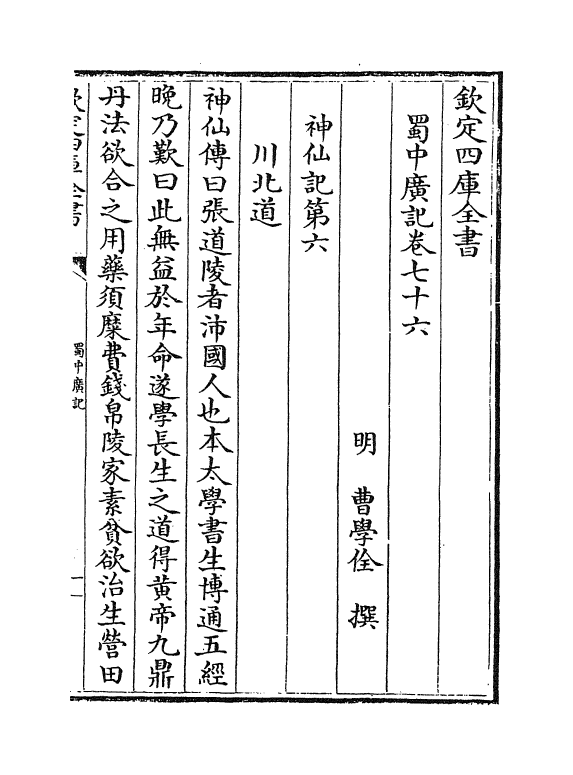 欽定四庫全書
蜀中廣記卷七十六
明 曹學佺 撰
神仙記第六
川北道
神仙傳曰張道陵者沛國人也本太學書生博通五經
晩乃歎曰此無益於年命遂學長生之道得黃帝九鼎
丹法欲合之用藥須糜費錢帛陵家素貧欲治生營田
欽定四庫全書
蜀中廣記
一